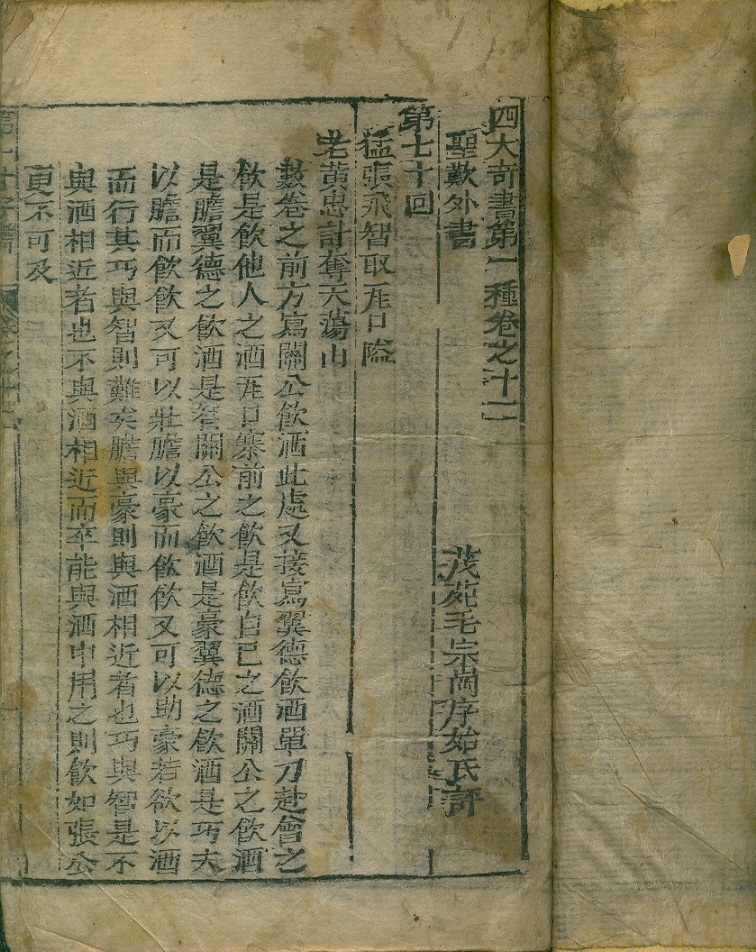 四大奇書第一種卷之十二
聖歎外書
茂苑毛宗崗序始氏評
第七十回
猛張飛智取瓦口隘
老黃忠計奪天蕩山
數卷之前方寫關公飲酒此處又接寫翼德飲酒單刀赴會之
飲是飲他人之酒瓦口寨前之飲是飲自己之酒關公之飲酒
是膽翼德之飲酒是智關公之飲酒是豪翼德之飲酒是巧夫
以膽而飲飲又可以壯膽以豪而飲飲又可以助豪若欲以酒
而行其巧與智則難矣膽與豪則與酒相近者也巧與智是不
與酒相近者也不與酒相近而卒能與酒中用之則飲如張公
更不可及